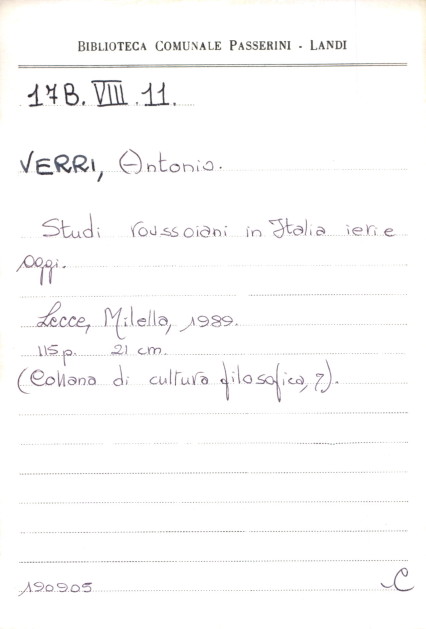 BIBLIOTECA COMUNALE PASSERINI - LANDI
17B.VIII.11.
VERRI, Antonio.
Studi roussoiani in Italia ieri e
oggi.
Lecce, Milella, 1989.
115 p. 21 cm.
(Collana di cultura filosofica, 7).
190905
C